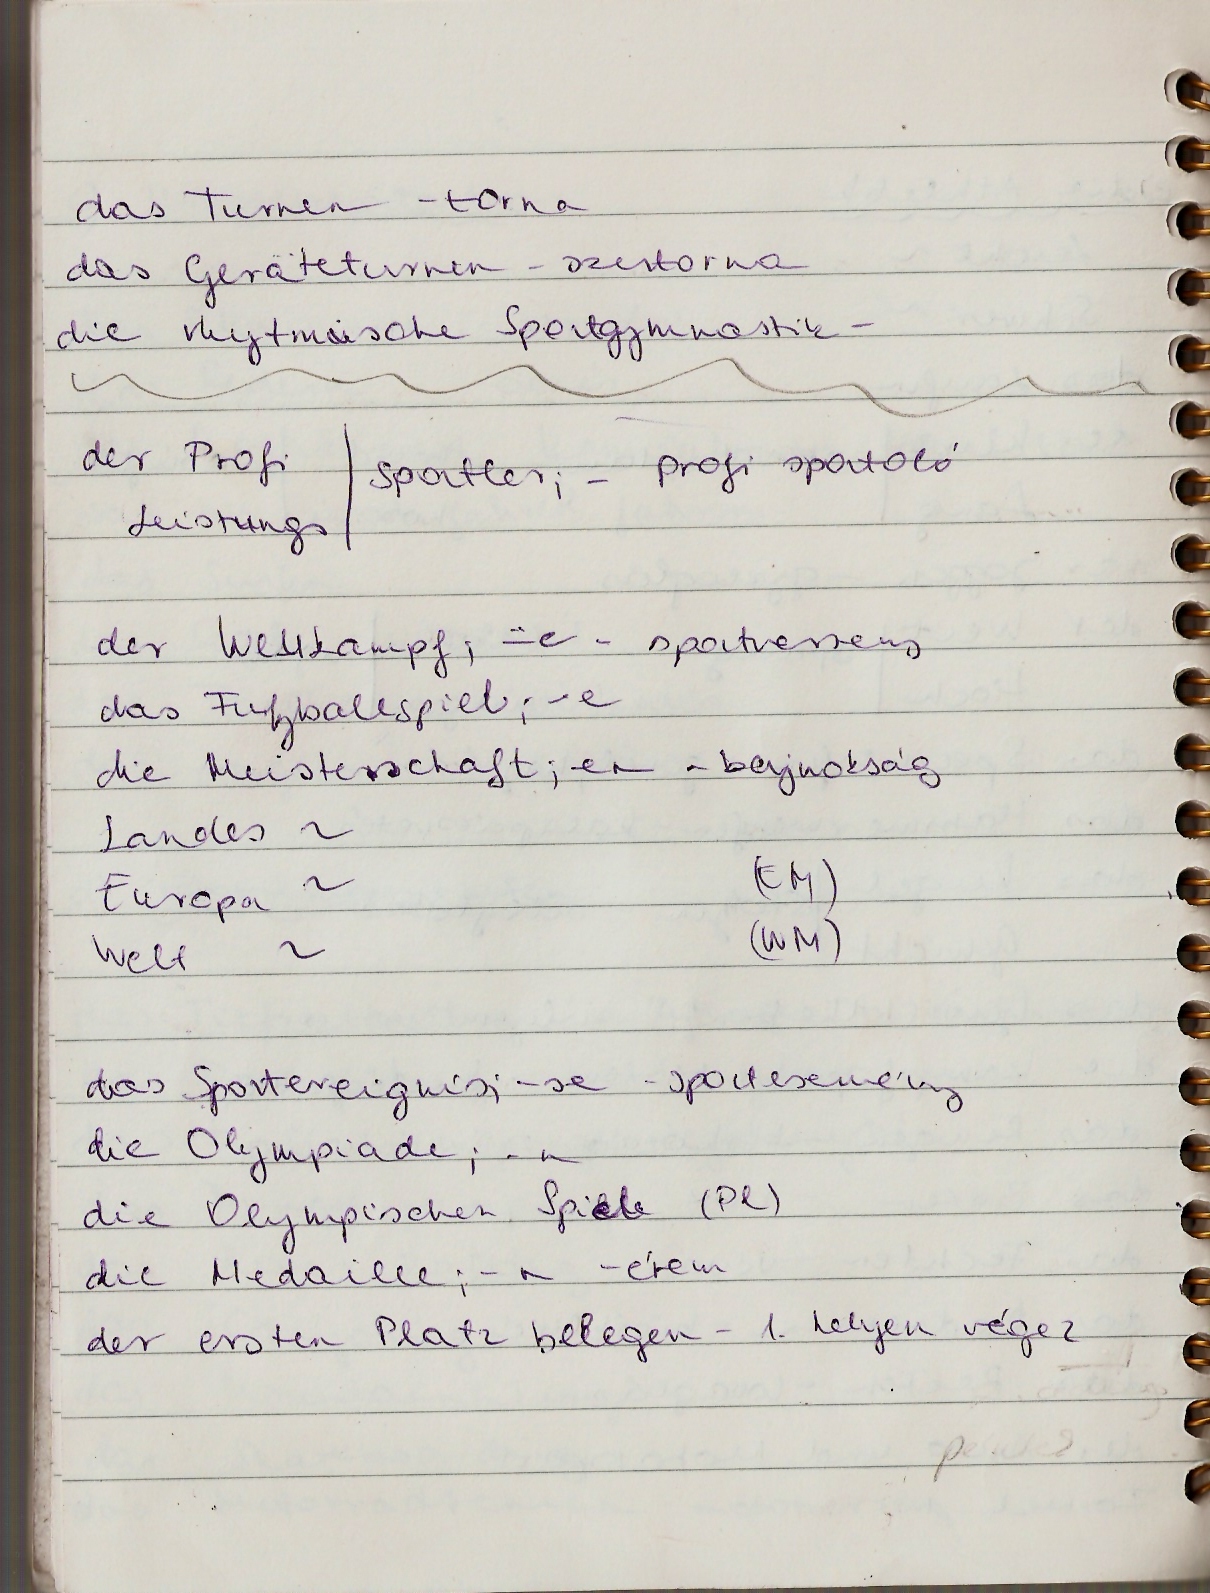 das Turnen - torna
das Geräteturnen - szertorna
die rhytmische Sportgymnastik -
der Profi | sportler; - profi sportoló
Leistungs
der Wettkampf; ⸚e - sportverseny
das Fußballspiel; -e
die Meisterschaft; -en - bajnokság
Landes ~
Europa ~ (EM)
Welt ~ (WM)
das Sportereignis; -se - sportesemény
die Olympiade; -n
die Olympischen Spiele (Pl)
die Medaille; -n - érem
der ersten Platz belegen - 1. helyen végez